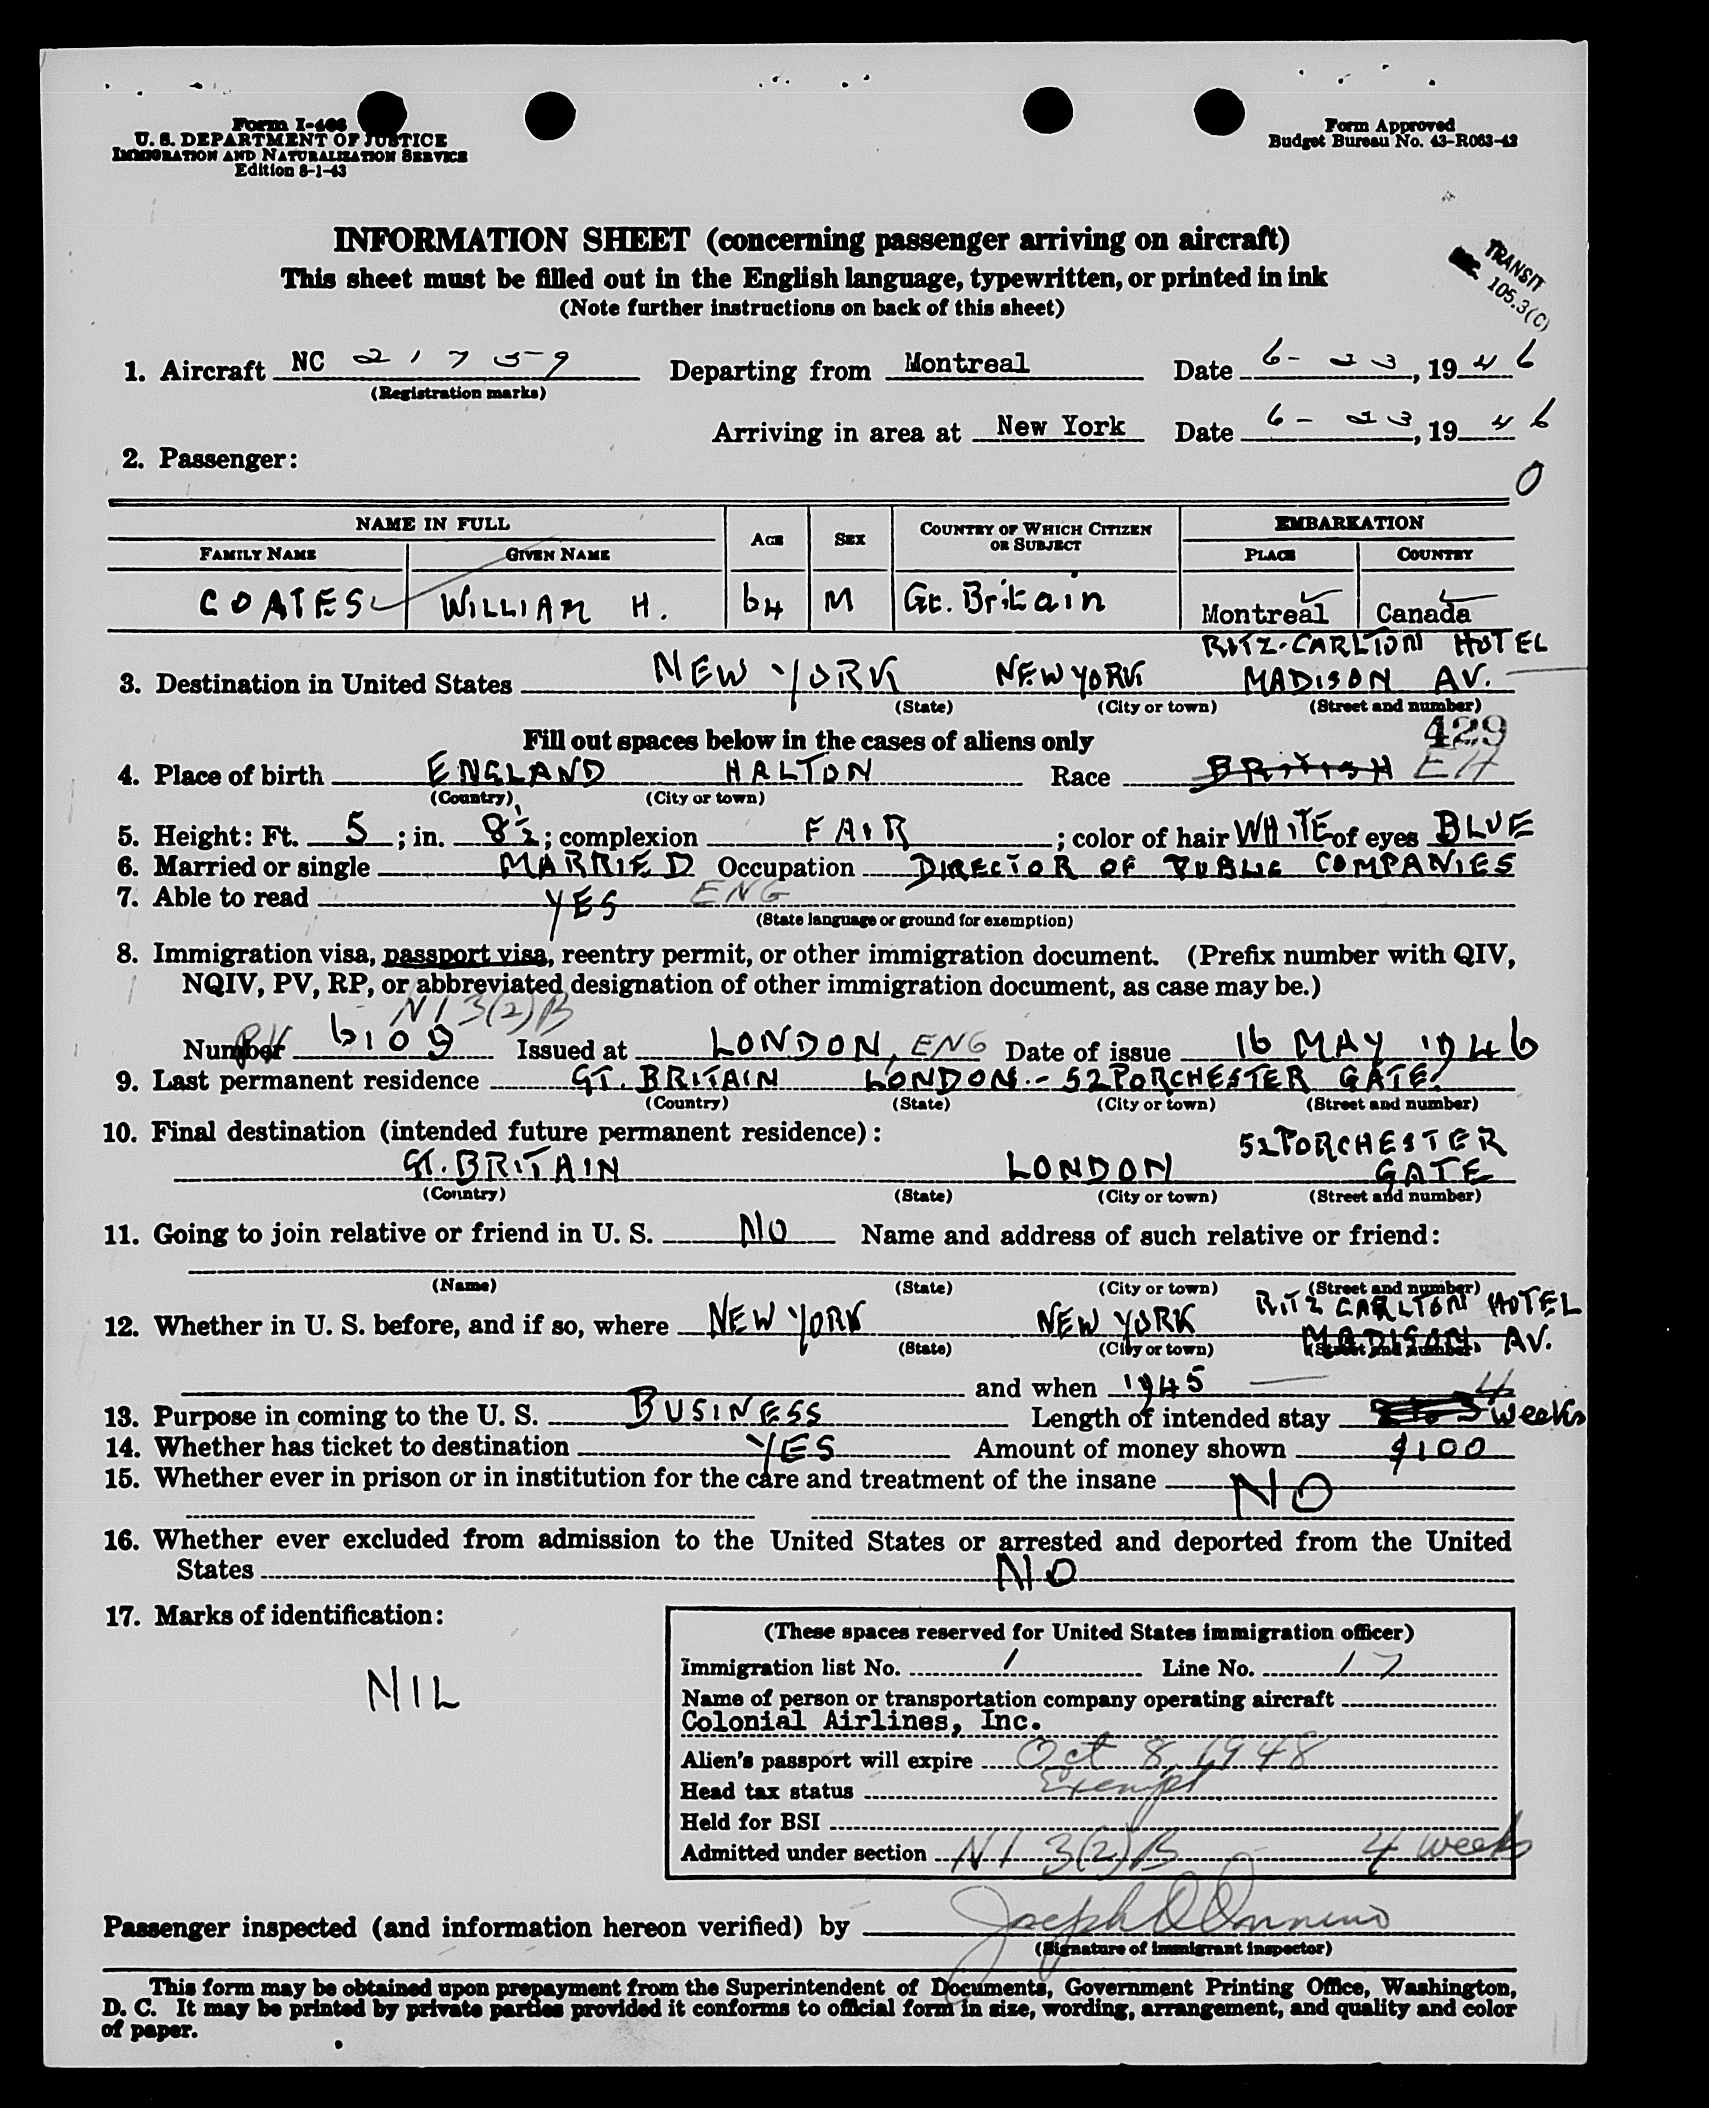 Form I-466
U. S. DEPARTMENT OF JUSTICE
IMMIGRATION AND NATURALIZATION SERVICE
Edition 8-1-43
Form Approved
Budget Bureau No. 43-R063-42
INFORMATION SHEET (concerning passenger arriving on aircraft)
This sheet must be filled out in the English language, typewritten, or printed in ink
(Note further instructions on back of this sheet)
TRANSIT
105.3(C)
1. Aircraft NC 21759 Departing from Montreal Date 6-23, 1946
(Registration marks)
Arriving in area at New York Date 6-23, 1946
2. Passenger:
0
NAME IN FULL AGE SEX COUNTRY OF WHICH CITIZEN OR SUBJECT EMBARKATION
FAMILY NAME GIVEN NAME PLACE COUNTRY
COATES WILLIAM H. 64 M Gt. Britain Montreal Canada
RITZ-CARLTON HOTEL
3. Destination in United States NEW YORK NEW YORK MADISON AV.
(State) (City or town) (Street and number)
Fill out spaces below in the cases of aliens only 429
4. Place of birth ENGLAND HALTON Race BRITISH EH
(Country) (City or town)
5. Height: Ft. 5; in. 8½; complexion FAIR; color of hair WHITE of eyes BLUE
6. Married or single MARRIED Occupation DIRECTOR OF PUBLIC COMPANIES
7. Able to read YES ENG
(State language or ground for exemption)
8. Immigration visa, passport visa, reentry permit, or other immigration document. (Prefix number with QIV,
NQIV, PV, RP, or abbreviated designation of other immigration document, as case may be.)
N I 3(2)B
Number PV 6109 Issued at LONDON, ENG Date of issue 16 MAY 1946
9. Last permanent residence GT. BRITAIN LONDON - 52 PORCHESTER GATE
(Country) (State) (City or town) (Street and number)
10. Final destination (intended future permanent residence):
52 PORCHESTER
GT. BRITAIN LONDON GATE
(Country) (State) (City or town) (Street and number)
11. Going to join relative or friend in U. S. NO Name and address of such relative or friend:
(Name) (State) (City or town) (Street and number)
RITZ CARLTON HOTEL
12. Whether in U. S. before, and if so, where NEW YORK NEW YORK MADISON AV.
(State) (City or town) (Street and number)
and when 1945
13. Purpose in coming to the U. S. BUSINESS Length of intended stay 4 weeks
14. Whether has ticket to destination YES Amount of money shown $100
15. Whether ever in prison or in institution for the care and treatment of the insane NO
16. Whether ever excluded from admission to the United States or arrested and deported from the United
States NO
17. Marks of identification:
NIL
(These spaces reserved for United States immigration officer)
Immigration list No. 1 Line No. 17
Name of person or transportation company operating aircraft
Colonial Airlines, Inc.
Alien's passport will expire Oct 8, 1948
Head tax status Exempt
Held for BSI
Admitted under section N I 3(2)B - 4 weeks
Passenger inspected (and information hereon verified) by Joseph
(Signature of immigrant inspector)
This form may be obtained upon prepayment from the Superintendent of Documents, Government Printing Office, Washington,
D. C. It may be printed by private parties provided it conforms to official form in size, wording, arrangement, and quality and color
of paper.